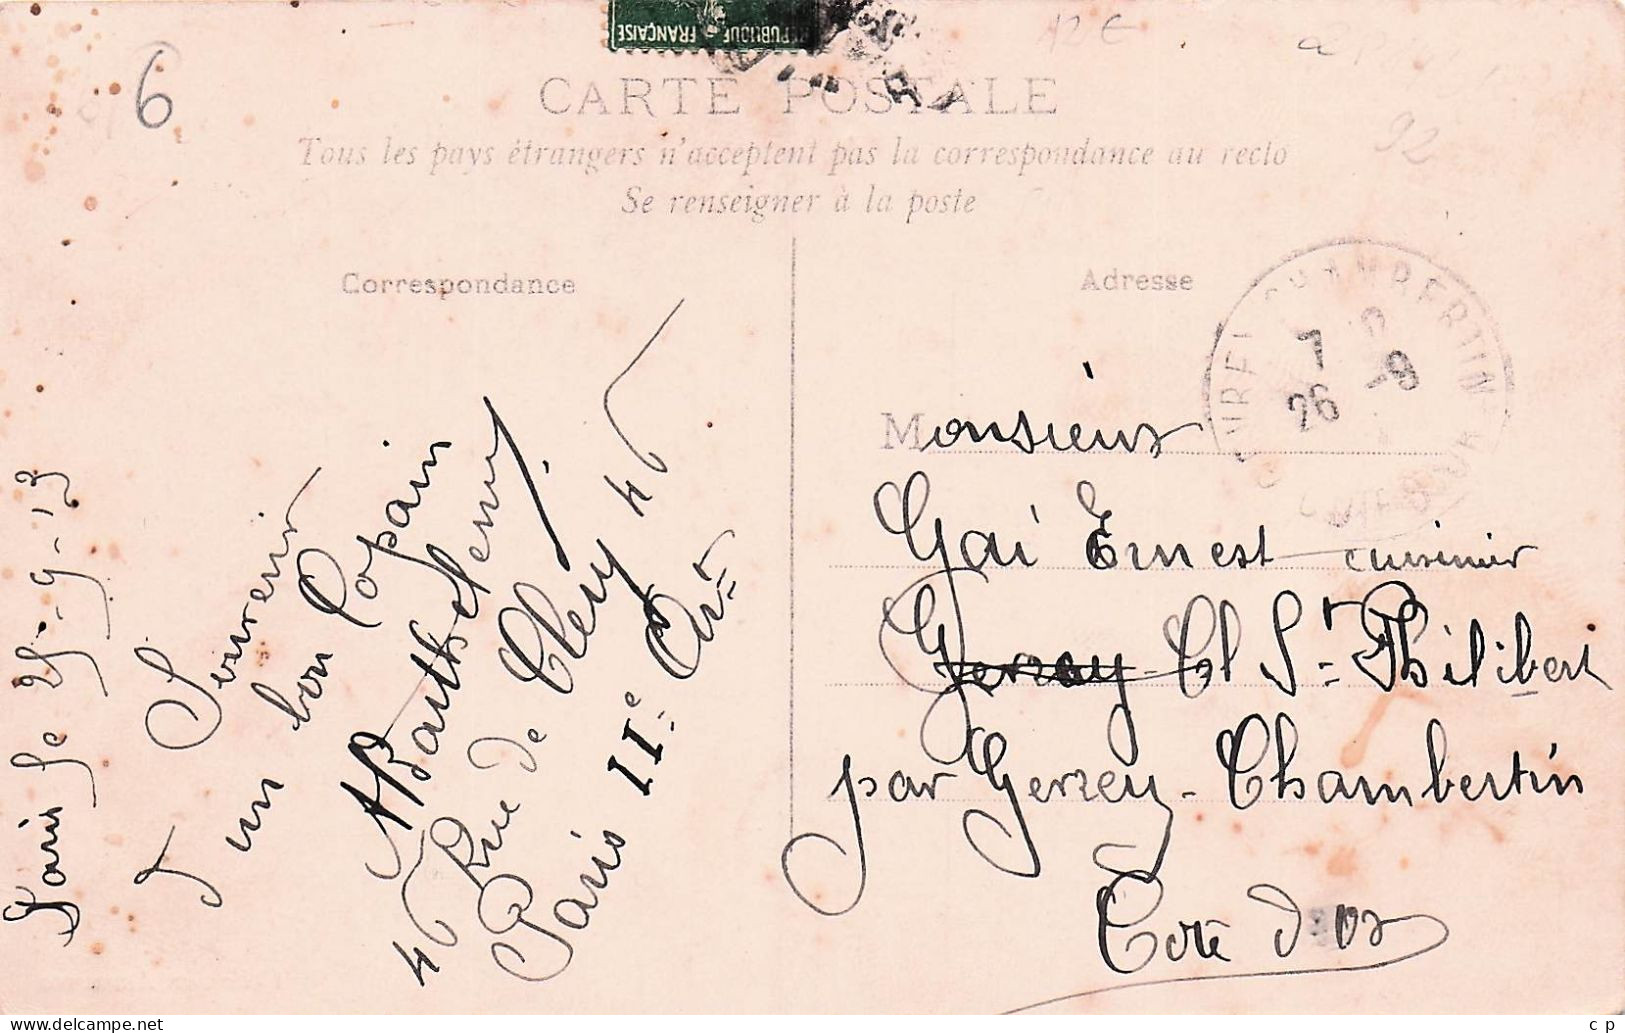 RÉPUBLIQUE FRANÇAISE
12 €
6
CARTE POSTALE
92
Tous les pays étrangers n'acceptent pas la correspondance au recto
Se renseigner à la poste
Correspondance
Paris le 25-9-13
Souvenir
d'un bon Copain
ABarthelemy
46 Rue de Clery 46
Paris IIe Arr
Adresse
7
26 -9
CHAMBERTIN
Monsieur
Gai Ernest cuisinier
Gerzey Cl St Philibert
par Gerzey-Chambertin
Cote d'or
c p